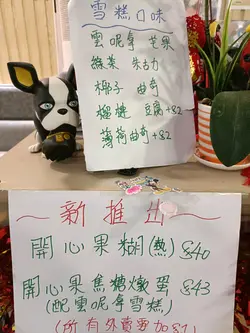 雪糕口味
雲呢拿 芒果
綠茶 朱古力
椰子 曲奇
榴槤 豆腐+$2
薄荷曲奇+$2
~新推出~
開心果糊(熱) $40
開心果焦糖燉蛋 $43
(配雲呢拿雪糕)
(所有外賣要加$1)